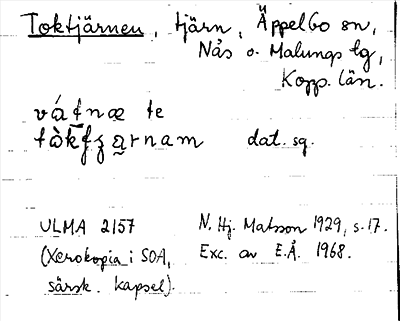 Toktjärnen, tjärn, Äppelbo sn,
Nås o. Malungs tg,
Kopp. län.
te
dat. sg.
ULMA 2157
N. Hj. Matsson 1929, s. 17.
(Xerokopia i SOA,
Exc. av E.Å. 1968.
särsk. kapsel).